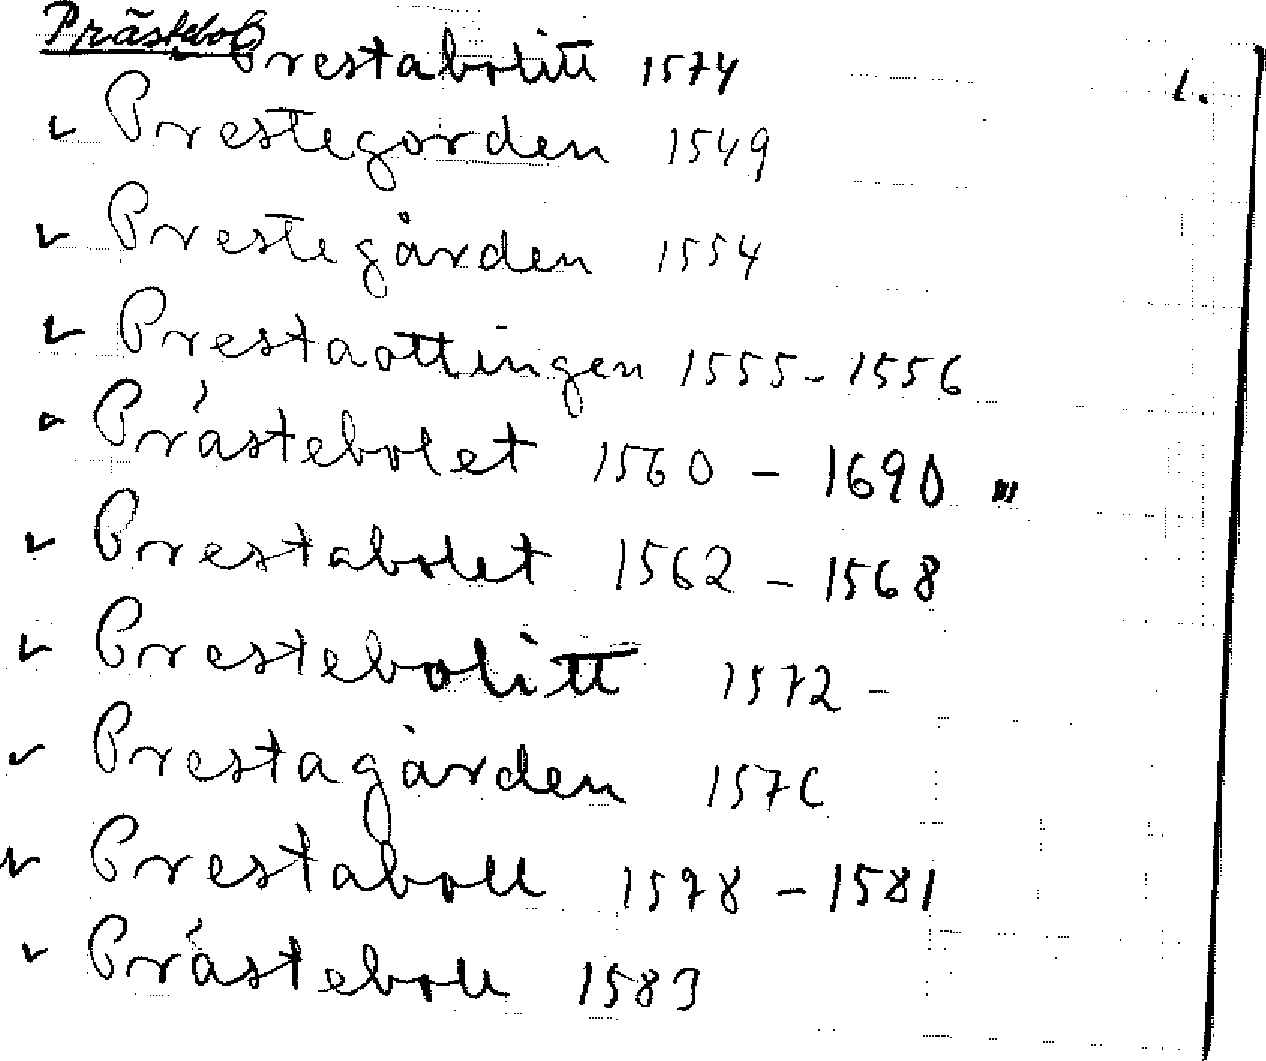 Prästebol
Prestabolitt 1574
1.
Prestegorden 1549
Prestegården 1554
Prestaottingen 1555-1556
Prástebolet 1560 - 1690 "'
Prestabolet 1562 - 1568
Prestebolitt 1572 -
Prestagården 1576
Prestaboll 1578 - 1581
Prásteboll 1583